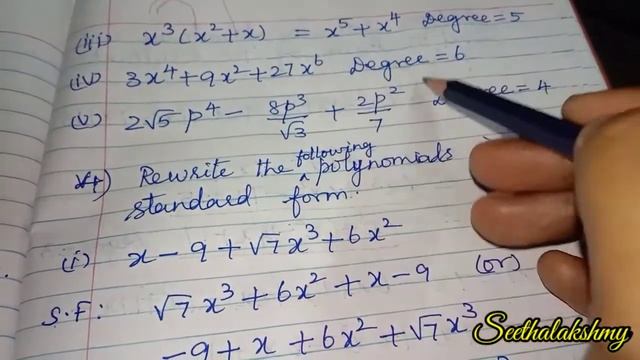 (iii) x³(x²+x) = x⁵+x⁴ Degree=5
(iv) 3x⁴+9x²+27x⁶ Degree=6
(v) 2√5 p⁴ - 8p³/√3 + 2p²/7 = 4
4) Rewrite the following polynomials
standard form.
(i) x-9+√7x³+6x²
S.F: √7x³+6x²+x-9 (or)
-9+x+6x²+√7x³
Seethalakshmy